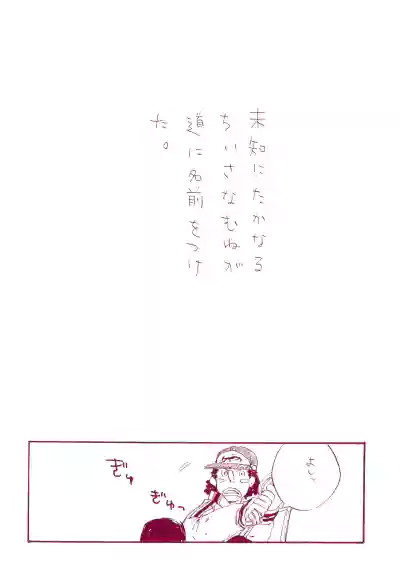 未知にたかなる
ちいさなむねが
道に名前をつけ
た。
よしっ
ぎゅ
ぎゅっ